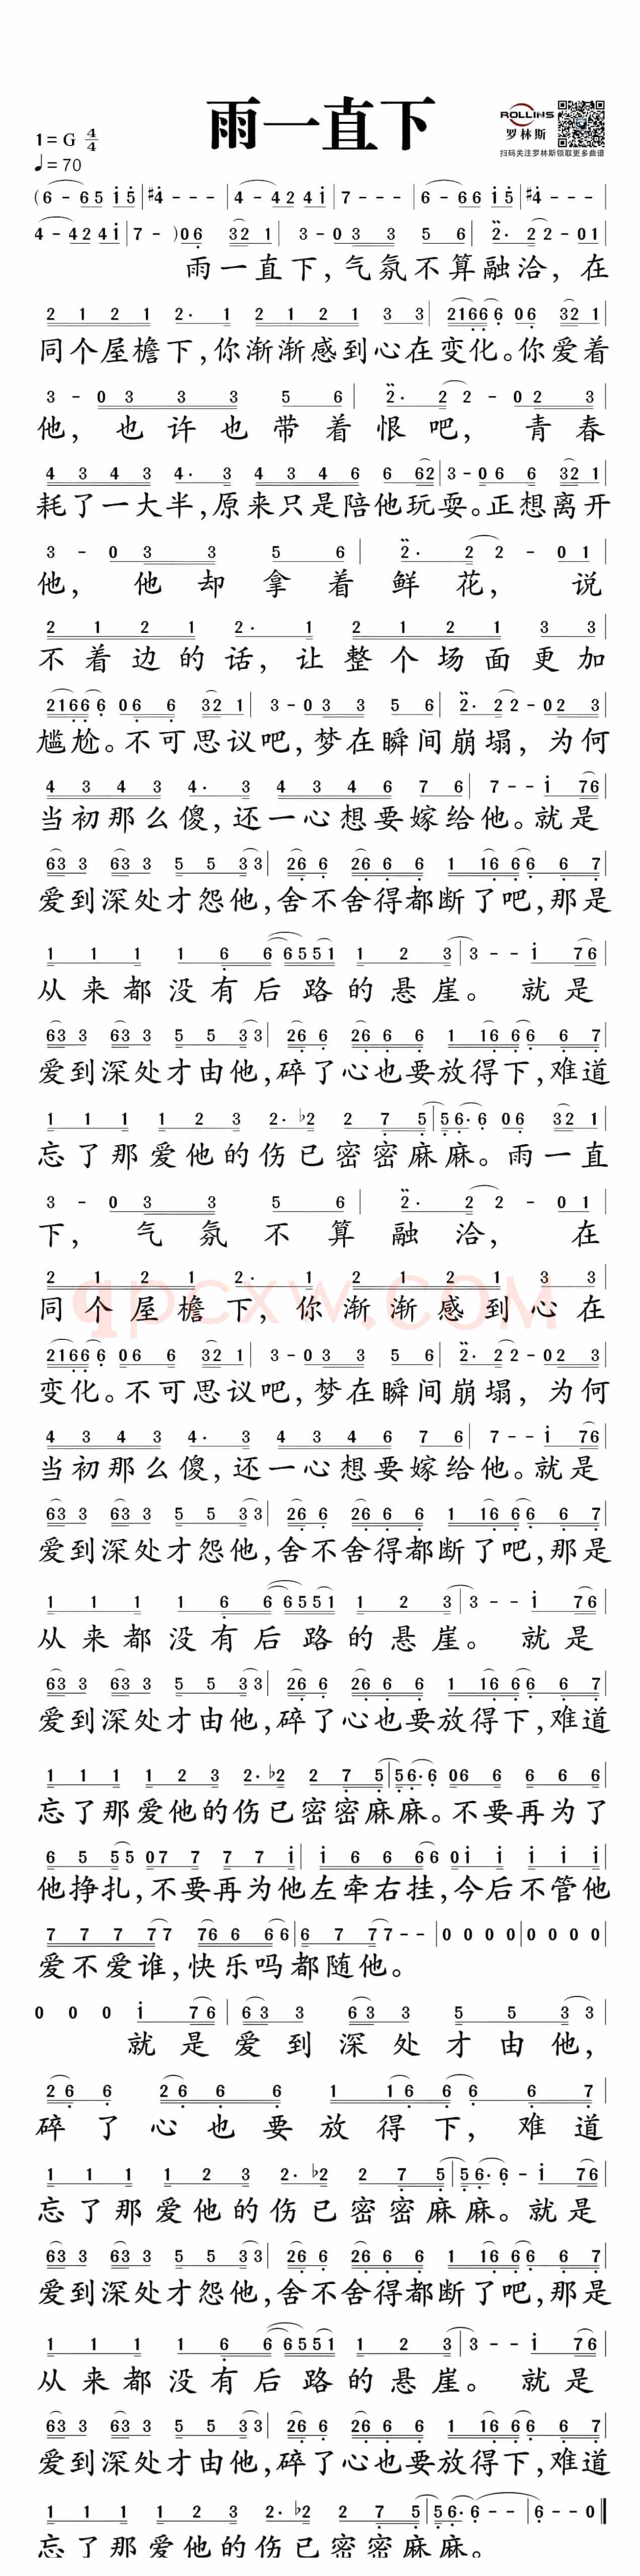 雨一直下
ROLLINS
罗林斯
扫码关注罗林斯领取更多曲谱
1=G 4/4
♩=70
雨一直下,气氛不算融洽,在
同个屋檐下,你渐渐感到心在变化。你爱着
他,也许也带着恨吧,青春
耗了一大半,原来只是陪他玩耍。正想离开
他,他却拿着鲜花,说
不着边的话,让整个场面更加
尴尬。不可思议吧,梦在瞬间崩塌,为何
当初那么傻,还一心想要嫁给他。就是
爱到深处才怨他,舍不舍得都断了吧,那是
从来都没有后路的悬崖。就是
爱到深处才由他,碎了心也要放得下,难道
忘了那爱他的伤已密密麻麻。雨一直
下,气氛不算融洽,在
同个屋檐下,你渐渐感到心在
变化。不可思议吧,梦在瞬间崩塌,为何
当初那么傻,还一心想要嫁给他。就是
爱到深处才怨他,舍不舍得都断了吧,那是
从来都没有后路的悬崖。就是
爱到深处才由他,碎了心也要放得下,难道
忘了那爱他的伤已密密麻麻。不要再为了
他挣扎,不要再为他左牵右挂,今后不管他
爱不爱谁,快乐吗都随他。
就是爱到深处才由他,
碎了心也要放得下,难道
忘了那爱他的伤已密密麻麻。就是
爱到深处才怨他,舍不舍得都断了吧,那是
从来都没有后路的悬崖。就是
爱到深处才由他,碎了心也要放得下,难道
忘了那爱他的伤已密密麻麻。
qpcxw.COM